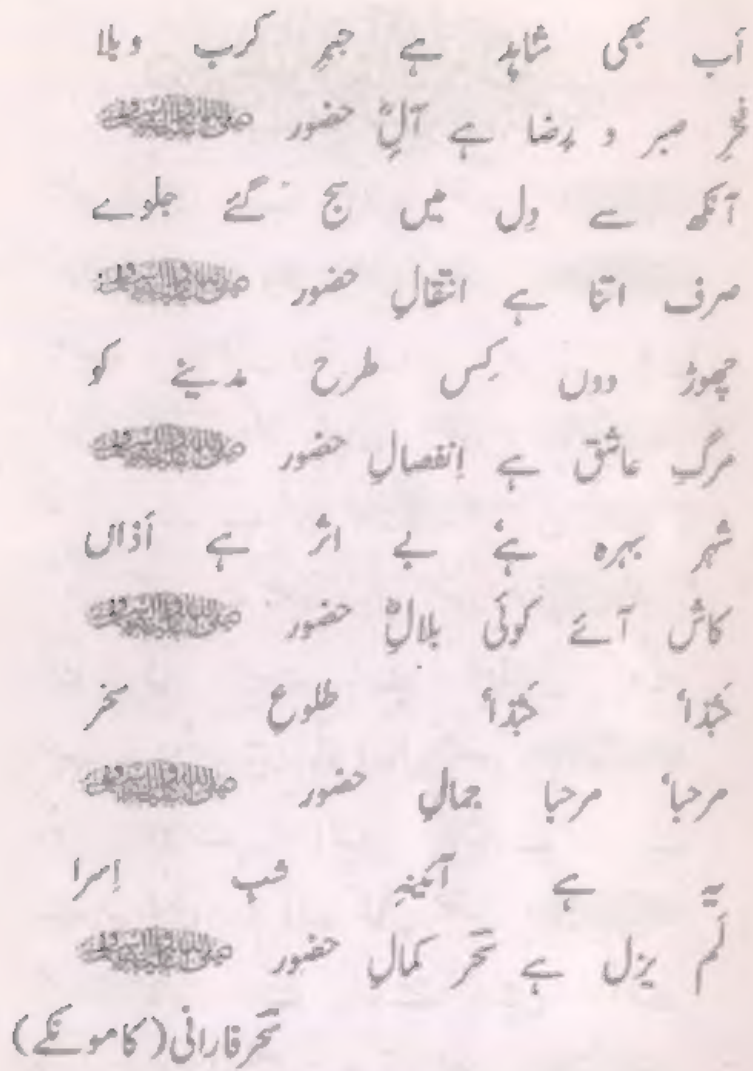 اَب بھی شاہد ہے جبرِ کرب وبلا
فخرِ صبر و رِضا ہے آلِؓ حضور ﷺ
آنکھ سے دِل میں سج گئے جلوے
صرف اتنا ہے انتقالِ حضور ﷺ
چھوڑ دوں کِس طرح مدینے کو
مرگِ عاشق ہے اِنفصالِ حضور ﷺ
شہر بہرہ ہے٬ بے اثر ہے اَذاں
کاش آئے کوئی بلالِؓ حضور ﷺ
حَبّذا٬ حَبّذا٬ طلوعِ سحَر
مرحبا٬ مرحبا جمالِ حضور ﷺ
یہ ہے آئینہِ شبِ اِسرا
لَم یزل ہے سحَر کمالِ حضور ﷺ
سحَر فارانی (کامونکے)